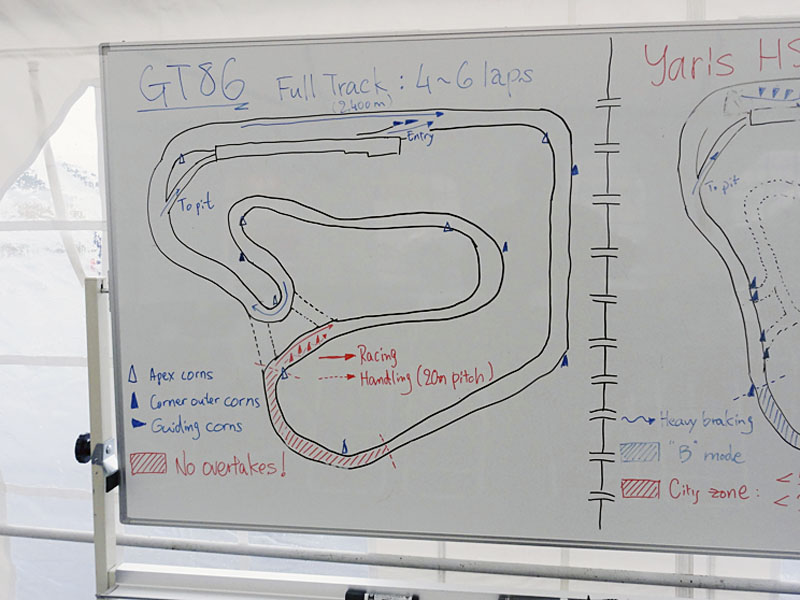 GT86
Full Track : 4~6 laps
(2.400m)
Entry
To pit
Racing
Handling (20m pitch)
Apex corns
Corner outer corns
Guiding corns
No overtakes!
Yaris HS
To pit
Heavy braking
"B" mode
City zone : <
<